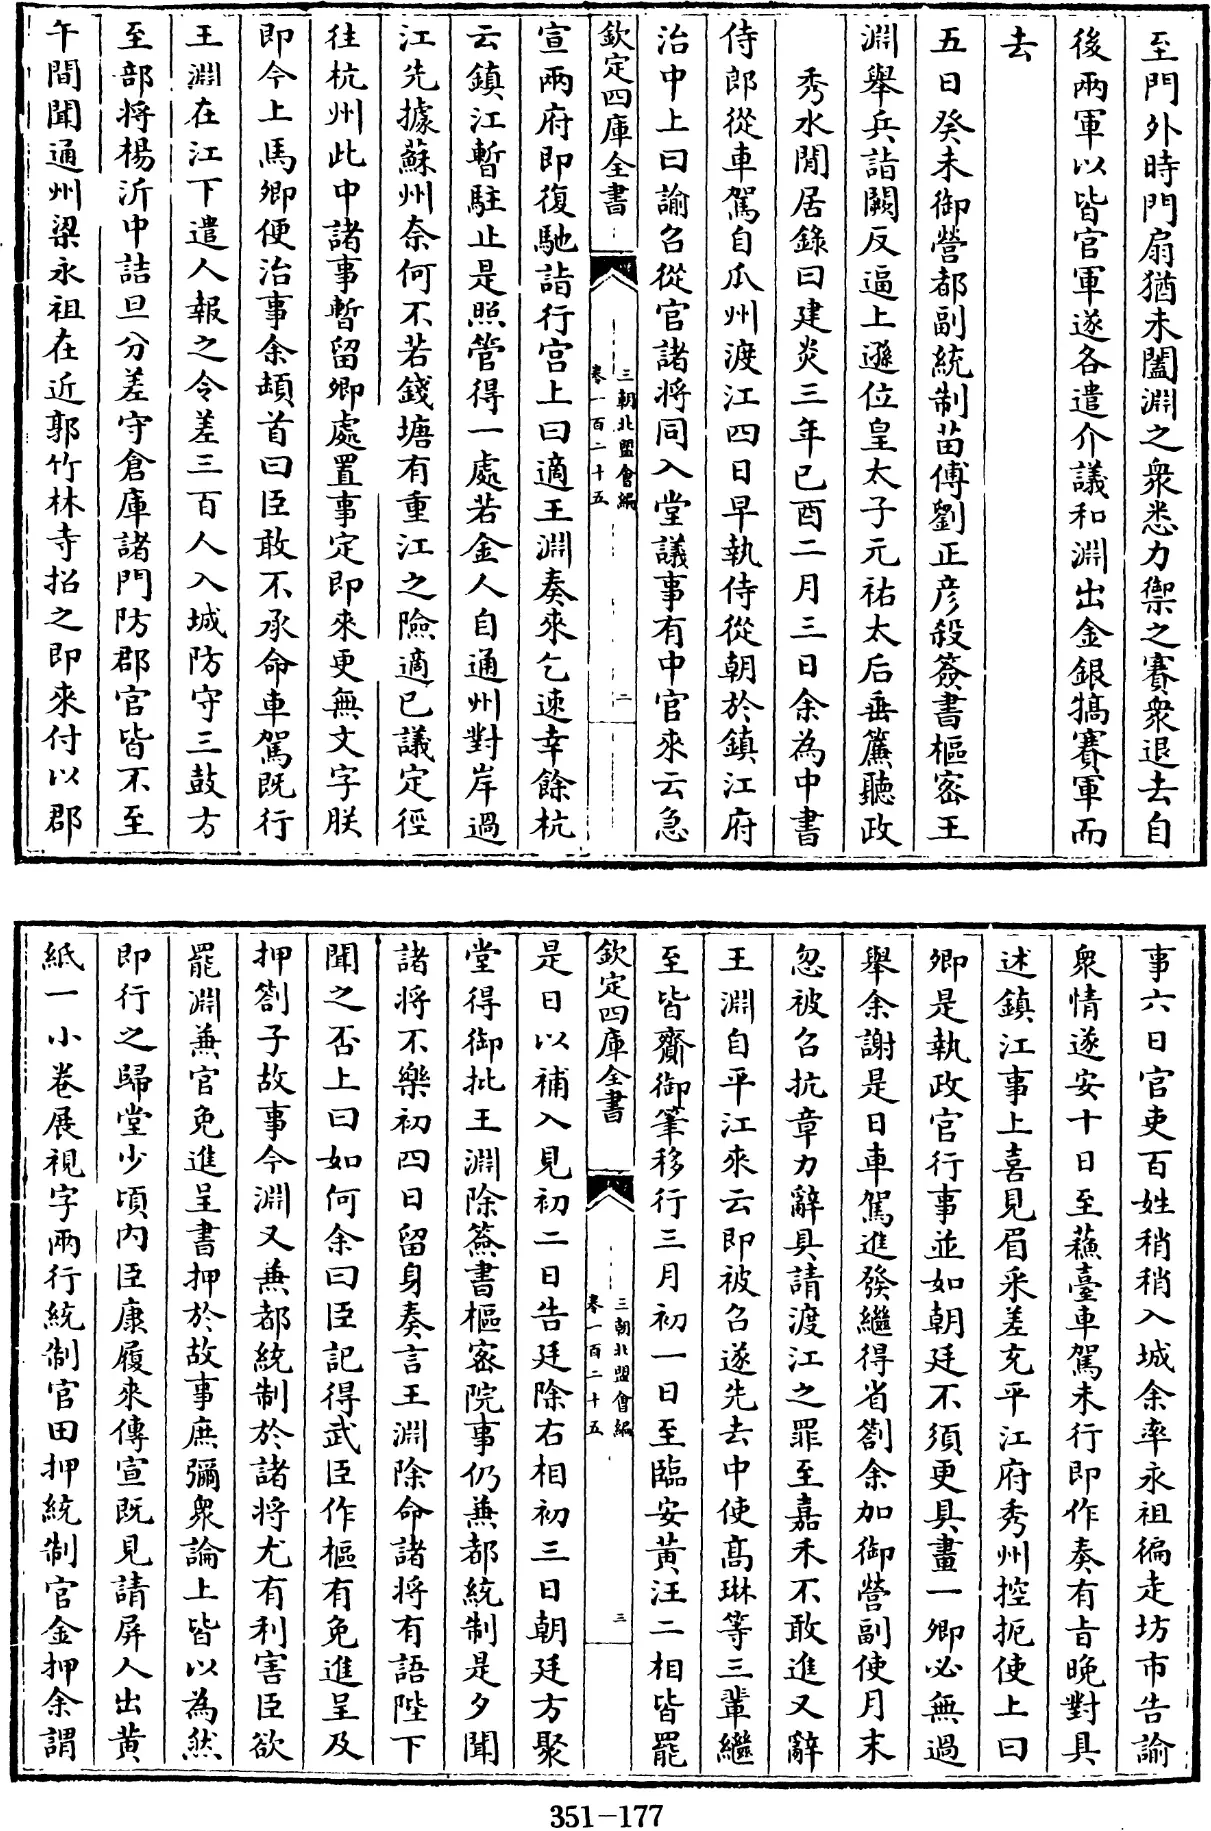 至門外時門扇猶未闔淵之衆悉力禦之賽衆退去自
後兩軍以皆官軍遂各遣介議和淵出金銀犒賽軍而
去
五日癸未御營都副統制苗傅劉正彦殺簽書樞密王
淵舉兵詣闕反逼上遜位皇太子元祐太后垂簾聽政
秀水閒居錄曰建炎三年已酉二月三日余為中書
侍郎從車駕自瓜州渡江四日早執侍從朝於鎮江府
治中上曰諭召從官諸將同入堂議事有中官來云急
欽定四庫全書
三朝北盟會編
卷一百二十五
二
宣兩府即復馳詣行宫上曰適王淵奏來乞速幸餘杭
云鎮江暫駐止是照管得一處若金人自通州對岸過
江先據蘇州奈何不若錢塘有重江之險適已議定徑
往杭州此中諸事暫留卿處置事定即來更無文字朕
即今上馬卿便治事余頓首曰臣敢不承命車駕既行
王淵在江下遣人報之令差三百人入城防守三鼓方
至部將楊沂中詰旦分差守倉庫諸門防郡官皆不至
午間聞通州梁永祖在近郭竹林寺招之即來付以郡
事六日官吏百姓稍稍入城余率永祖徧走坊市告諭
衆情遂安十日至蘓臺車駕未行即作奏有㫖晚對具
述鎮江事上喜見眉采差充平江府秀州控扼使上曰
卿是執政官行事並如朝廷不須更具畫一卿必無過
舉余謝是日車駕進發繼得省劄余加御營副使月末
忽被召抗章力辭具請渡江之罪至嘉禾不敢進又辭
王淵自平江來云即被召遂先去中使髙琳等三輩繼
至皆齎御筆移行三月初一日至臨安黄汪二相皆罷
欽定四庫全書
三朝北盟會編
卷一百二十五
三
是日以補入見初二日告廷除右相初三日朝廷方聚
堂得御批王淵除簽書樞密院事仍兼都統制是夕聞
諸將不樂初四日留身奏言王淵除命諸將有語陛下
聞之否上曰如何余曰臣記得武臣作樞有免進呈及
押劄子故事今淵又兼都統制於諸將尤有利害臣欲
罷淵兼官免進呈書押於故事庶彌衆論上皆以為然
即行之歸堂少頃内臣康履來傳宣既見請屏人出黄
紙一小卷展視字兩行統制官田押統制官金押余謂
351-177